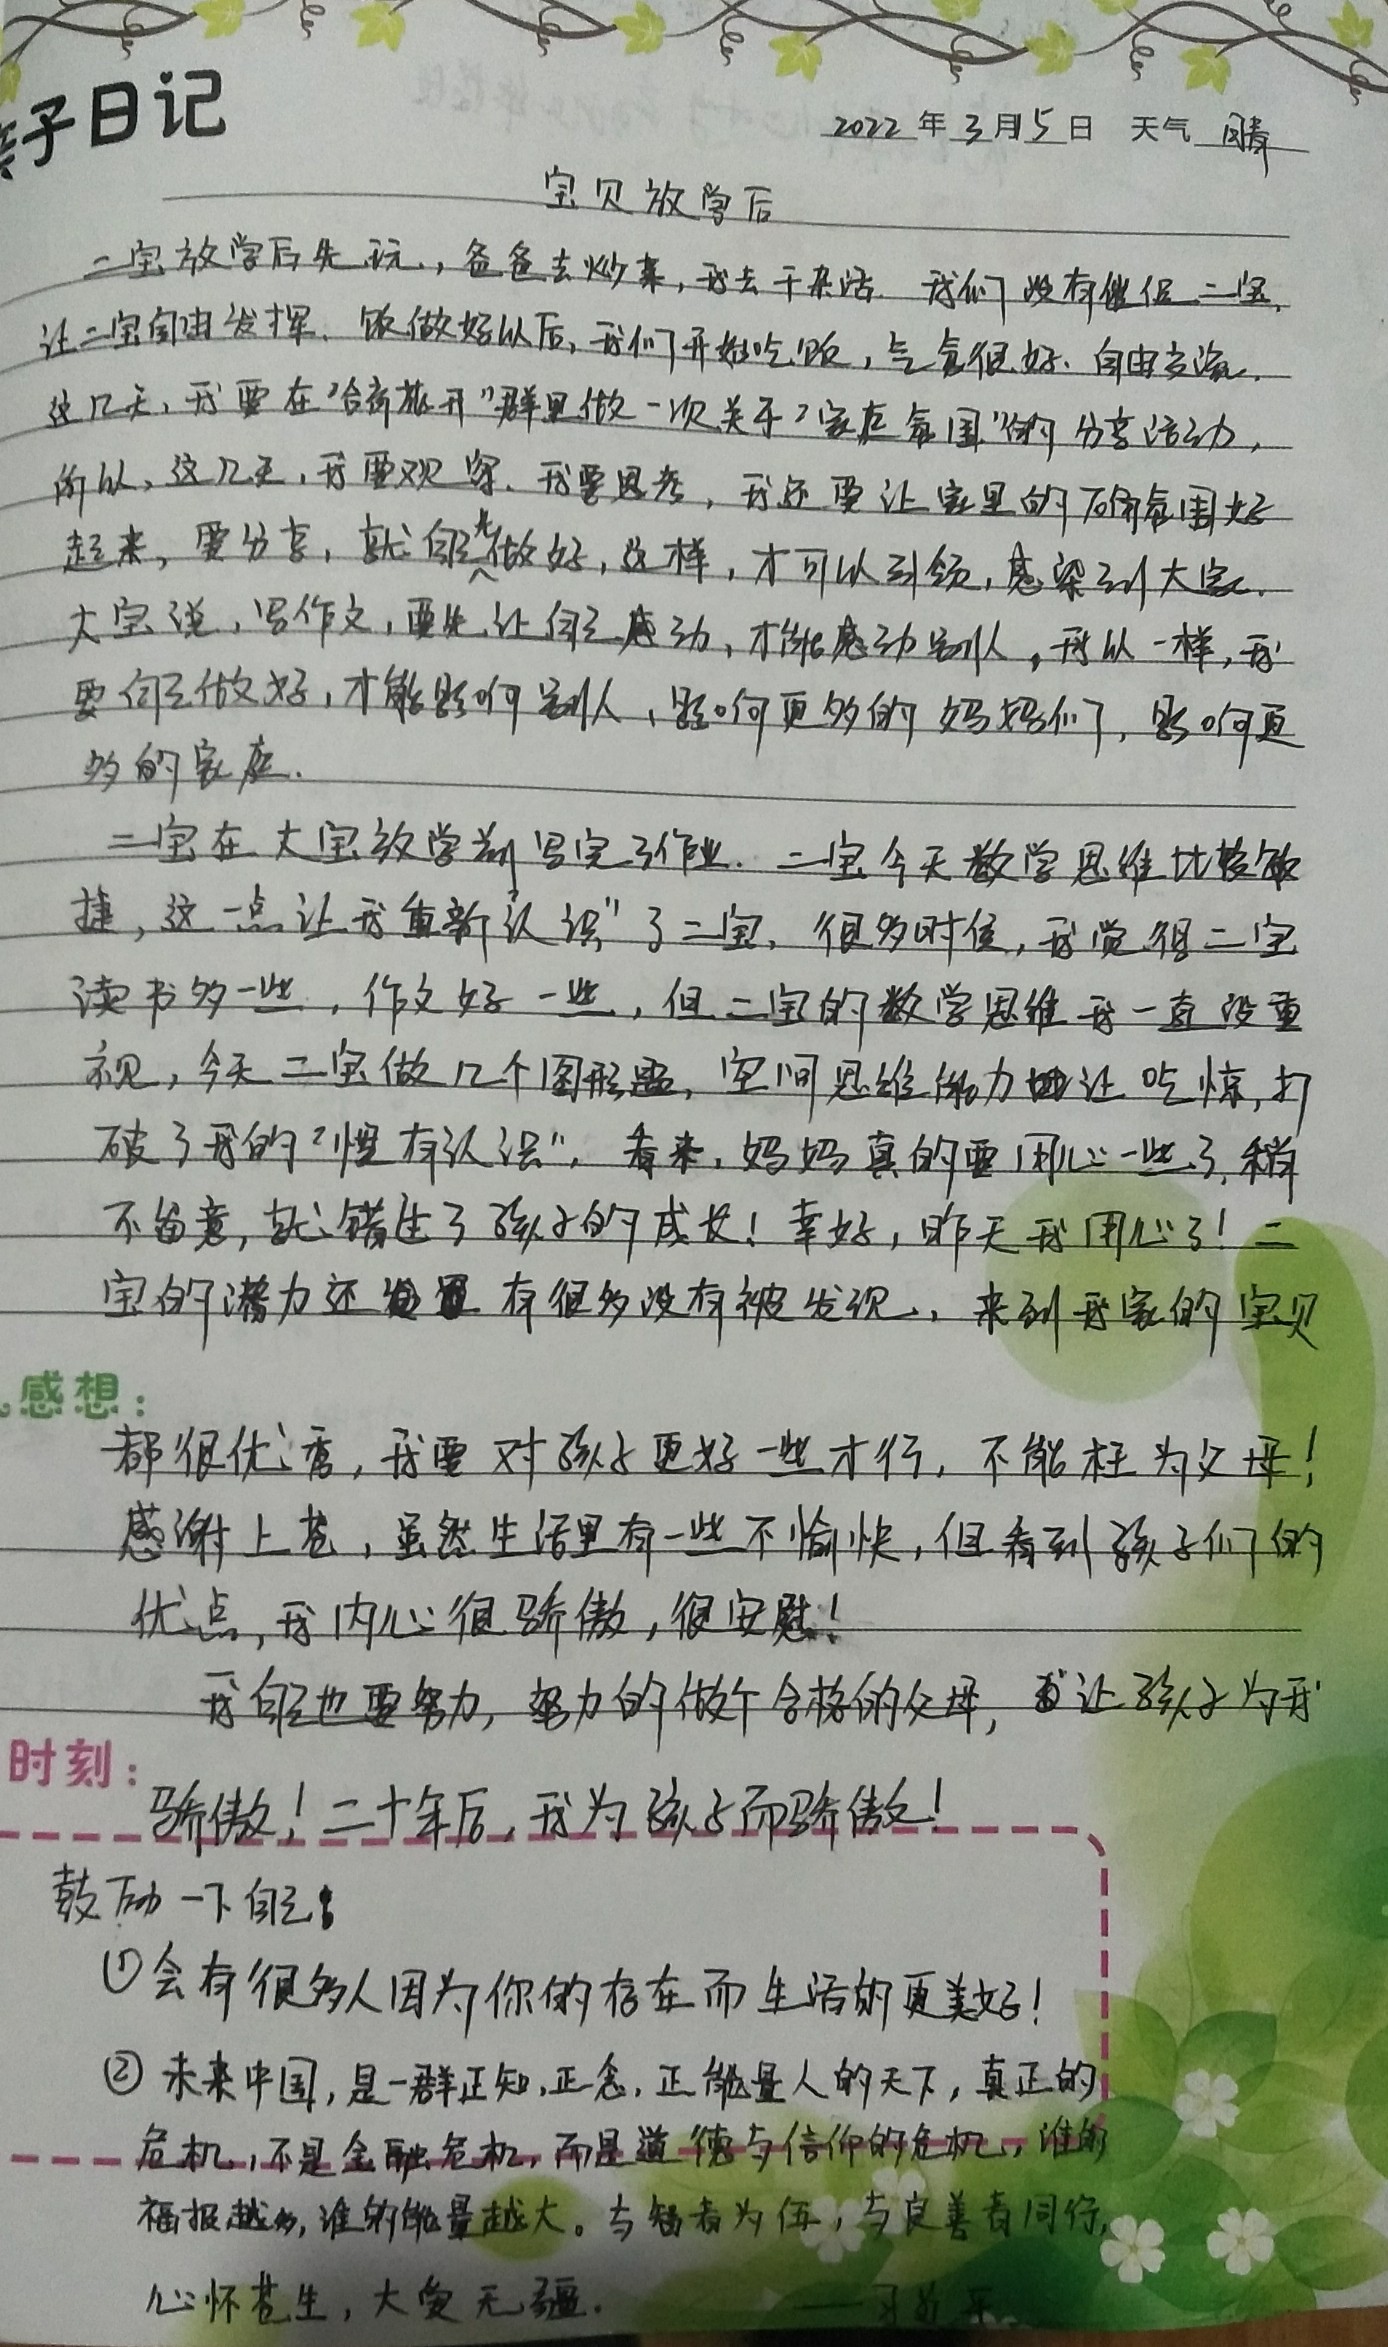 亲子日记
2022年3月5日 天气 晴
宝贝放学后
二宝放学后先玩,爸爸去炒菜,我去干杂活.我们没有催促二宝,
让二宝自由发挥.饭做好以后,我们开始吃饭,气氛很好.自由交流.
这几天,我要在"合奇花开"群里做一次关于"家庭氛围"的分享活动,
所以,这几天,我要观察.我要思考,我还要让家里的氛围好
起来,要分享,就自己先做好,这样,才可以引领,感染到大家.
大宝说,写作文,要先让自己感动,才能感动别人,我从一样,我
要自己做好,才能影响别人,影响更多的妈妈们,影响更
多的家庭.
二宝在大宝放学前写完了作业.二宝今天数学思维比较敏
捷,这一点让我"重新认识"了二宝.很多时候,我觉得二宝
读书多一些,作文好一些,但二宝的数学思维我一直没重
视,今天二宝做几个图形题,空间思维能力让吃惊,打
破了我的"惯有认识".看来,妈妈真的要用心一些了,稍
不留意,就错过了孩子的成长!幸好,昨天我用心了!二
宝的潜力还有很多没有被发现,来到我家的宝贝
感想:
都很优秀,我要对孩子更好一些才行,不能枉为父母!
感谢上苍,虽然生活里有一些不愉快,但看到孩子们的
优点,我内心很骄傲,很安慰!
我自己也要努力,努力的做个合格的父母,让孩子为我
时刻:
骄傲!二十年后,我为孩子而骄傲!
鼓励一下自己:
①会有很多人因为你的存在而生活的更美好!
②未来中国,是一群正知,正念,正能量人的天下,真正的
危机,不是金融危机,而是道德与信仰的危机,谁的
福报越多,谁的能量越大。与智者为伍,与良善者同行,
心怀苍生,大爱无疆.
——习近平